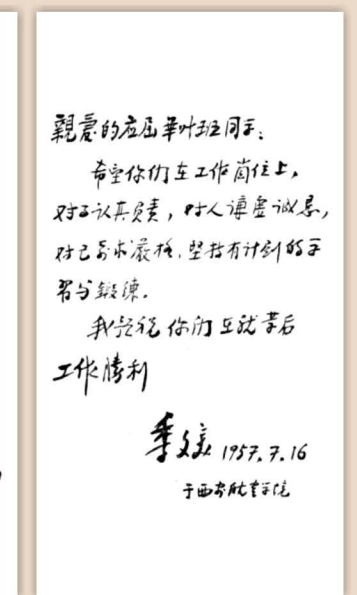 親爱的应届毕业班同学：
希望你们在工作崗位上，
对工认真负责，对人谦虚诚恳，
对己要求严格，坚持有计划的学
习与鍛鍊。
我预祝你们在就業后
工作勝利
季文美 1957.7.16
于西安航空学院